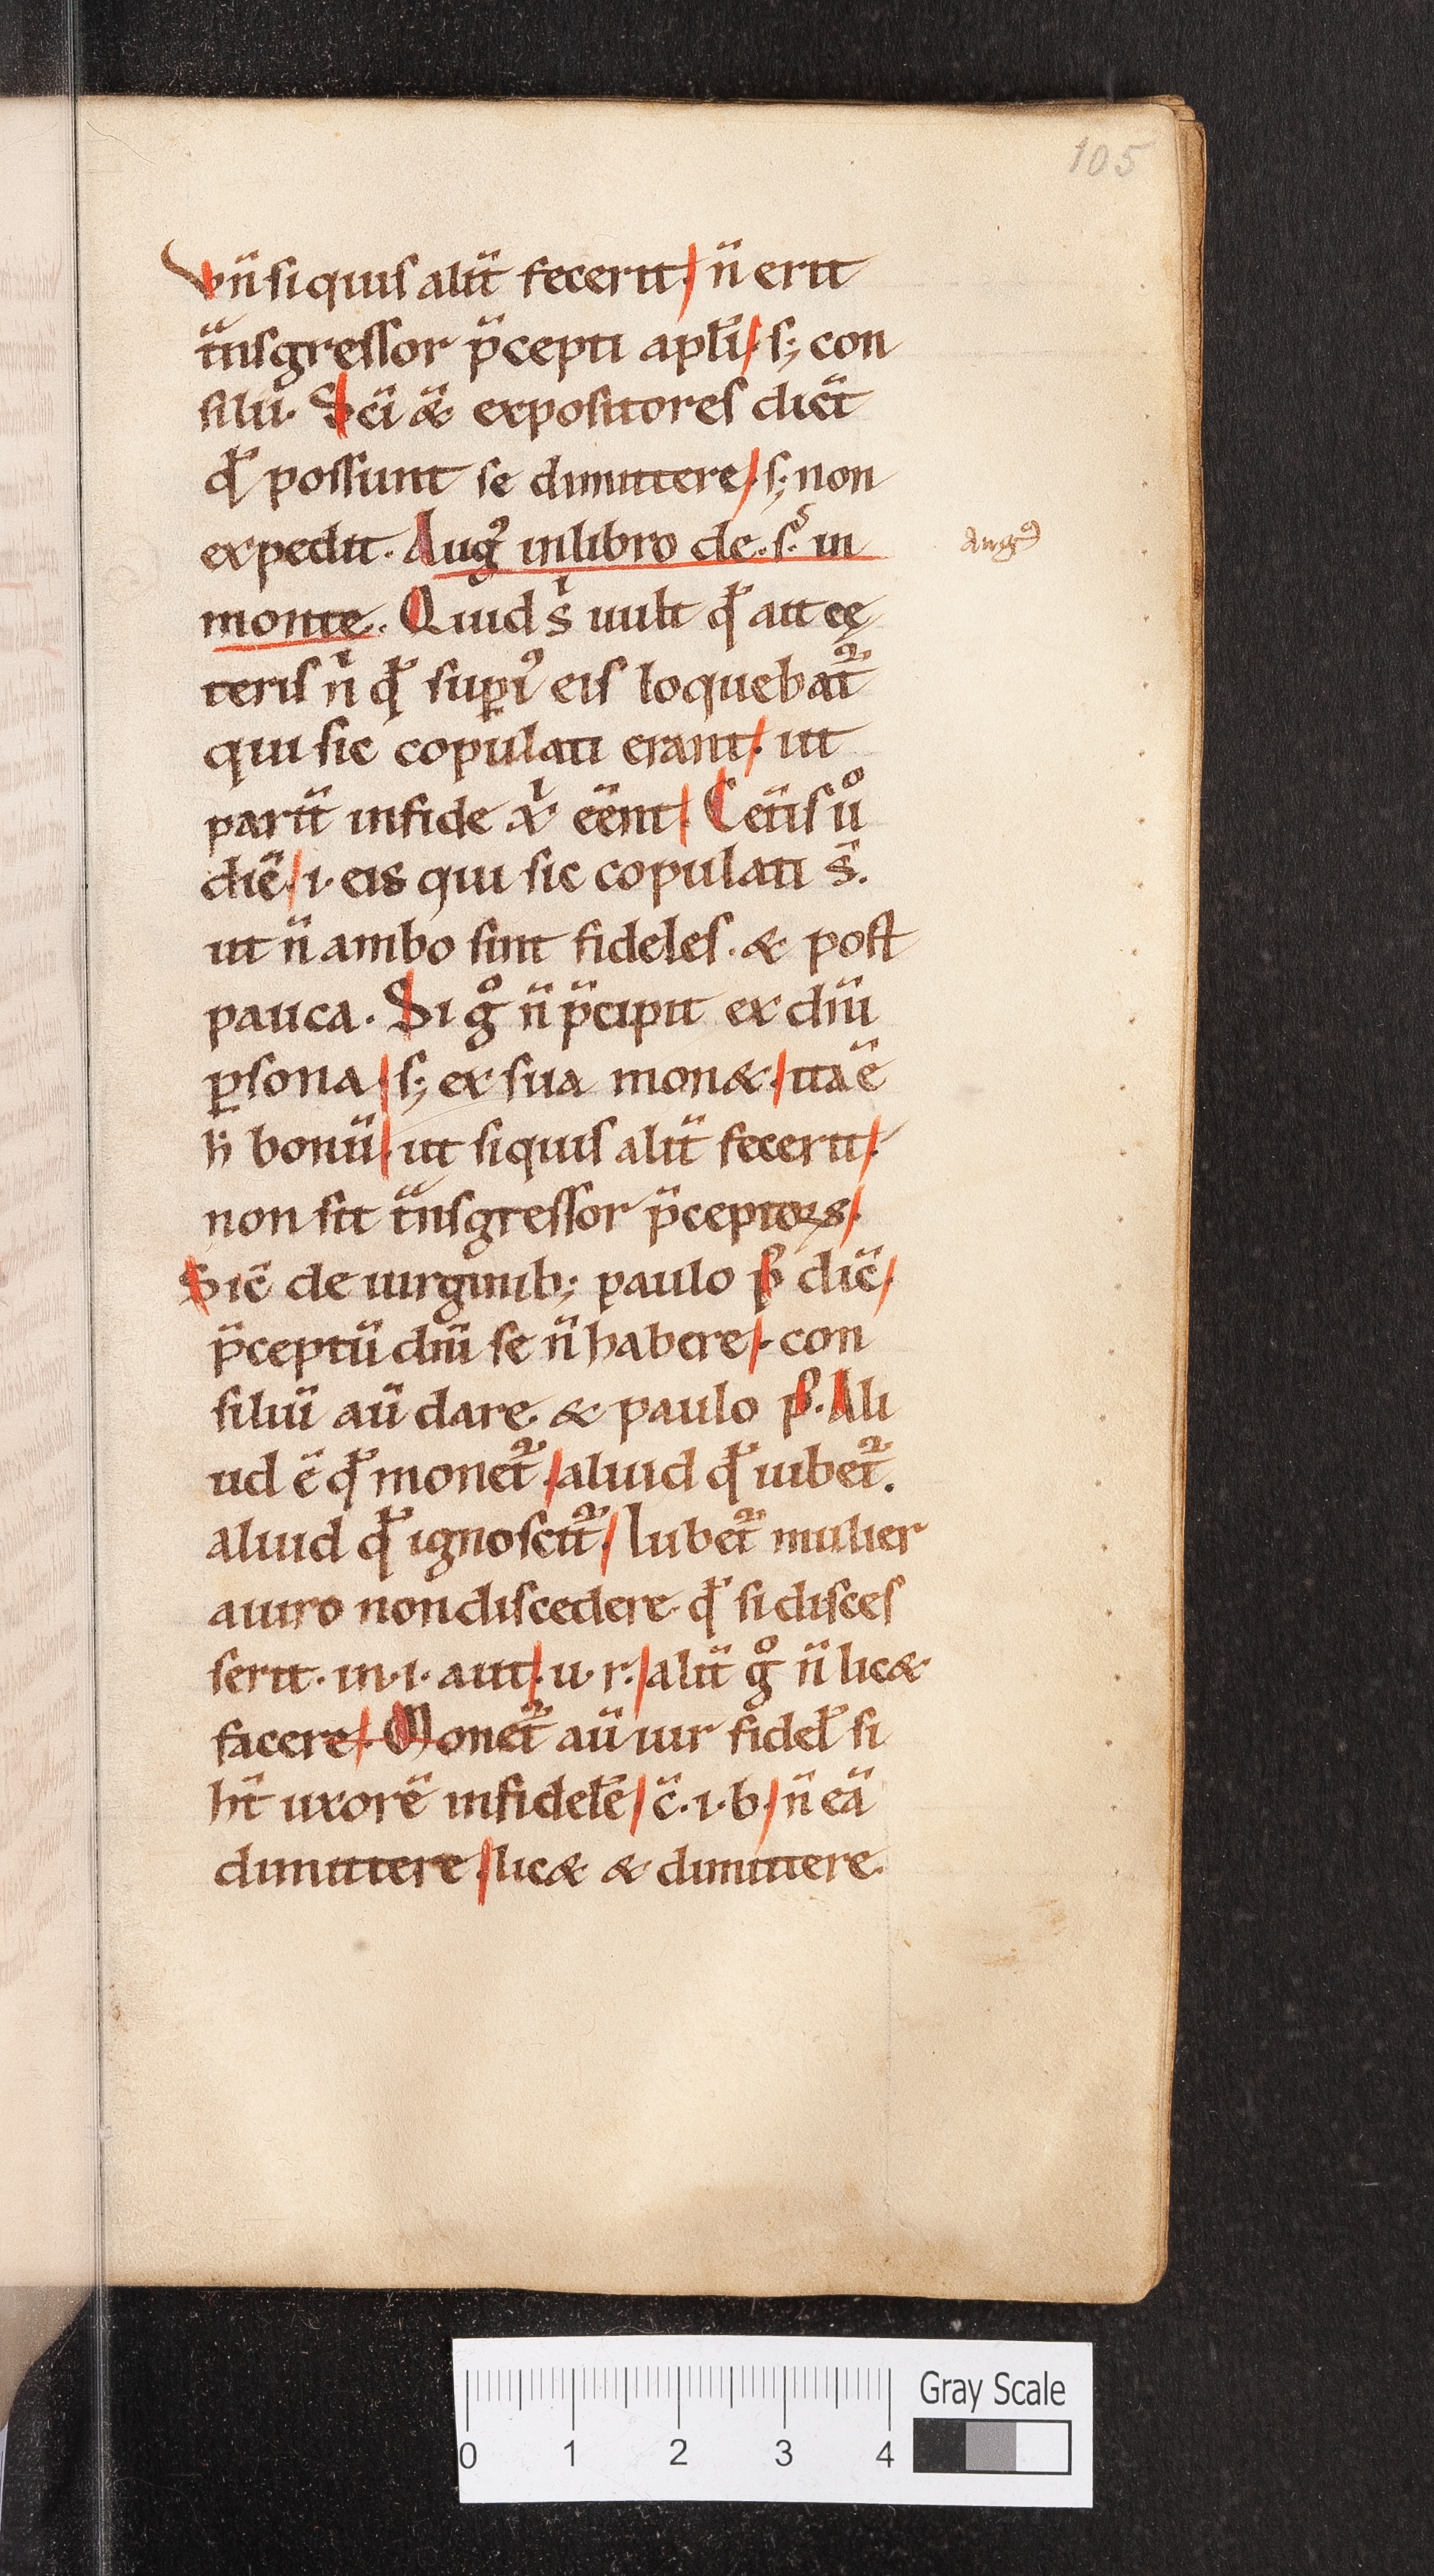 105
Vn̄ si quis alit̄ fecerit. n̄ erit
t̄nsgressor p̄cepti apl̄i. s; con
silii. Sc̄i &̄ expositores dic̄t
qd̄ possunt se dimittere. s; non
expedit. Augꝰ in libro de .s. in
Augꝰ
monte. Quid s̄ uult qd̄ ait cę
teris n̄ qd̄ supiꝰ eis loquebat̄
qui sic copulati erant. ut
parit̄ in fide xi eēnt. Cet̄is uͦ
dic̄. i. eis qui sic copulati s̄.
ut n̄ ambo sint fideles. & post
pauca. Si gͦ n̄ p̄cipit ex dn̄i
ꝑsona. s; ex sua mon&. ita ē
h̄ bonū. ut si quis alit̄ fecerit.
non sit t̄nsgressor p̄ceptoꝝ.
Sic̄ de uirginib; paulo p̄ dic̄.
p̄ceptū dn̄i se n̄ habere. con
siliū aū dare. & paulo p̄. Ali
ud ē qd̄ monet̄. aliud qd̄ iubet̄.
aliud qd̄ ignoscit̄. Iubet̄ mulier
a uiro non discedere. qd̄ si disces
serit. m. i. aut. u. r. alit̄ gͦ n̄ lic&
facere. Monet̄ aū uir fidel̄ si
ht̄ uxorē infidelē. c̄. i. b. n̄ eā
dimittere. lic& & dimittere.
Gray Scale
0 1 2 3 4